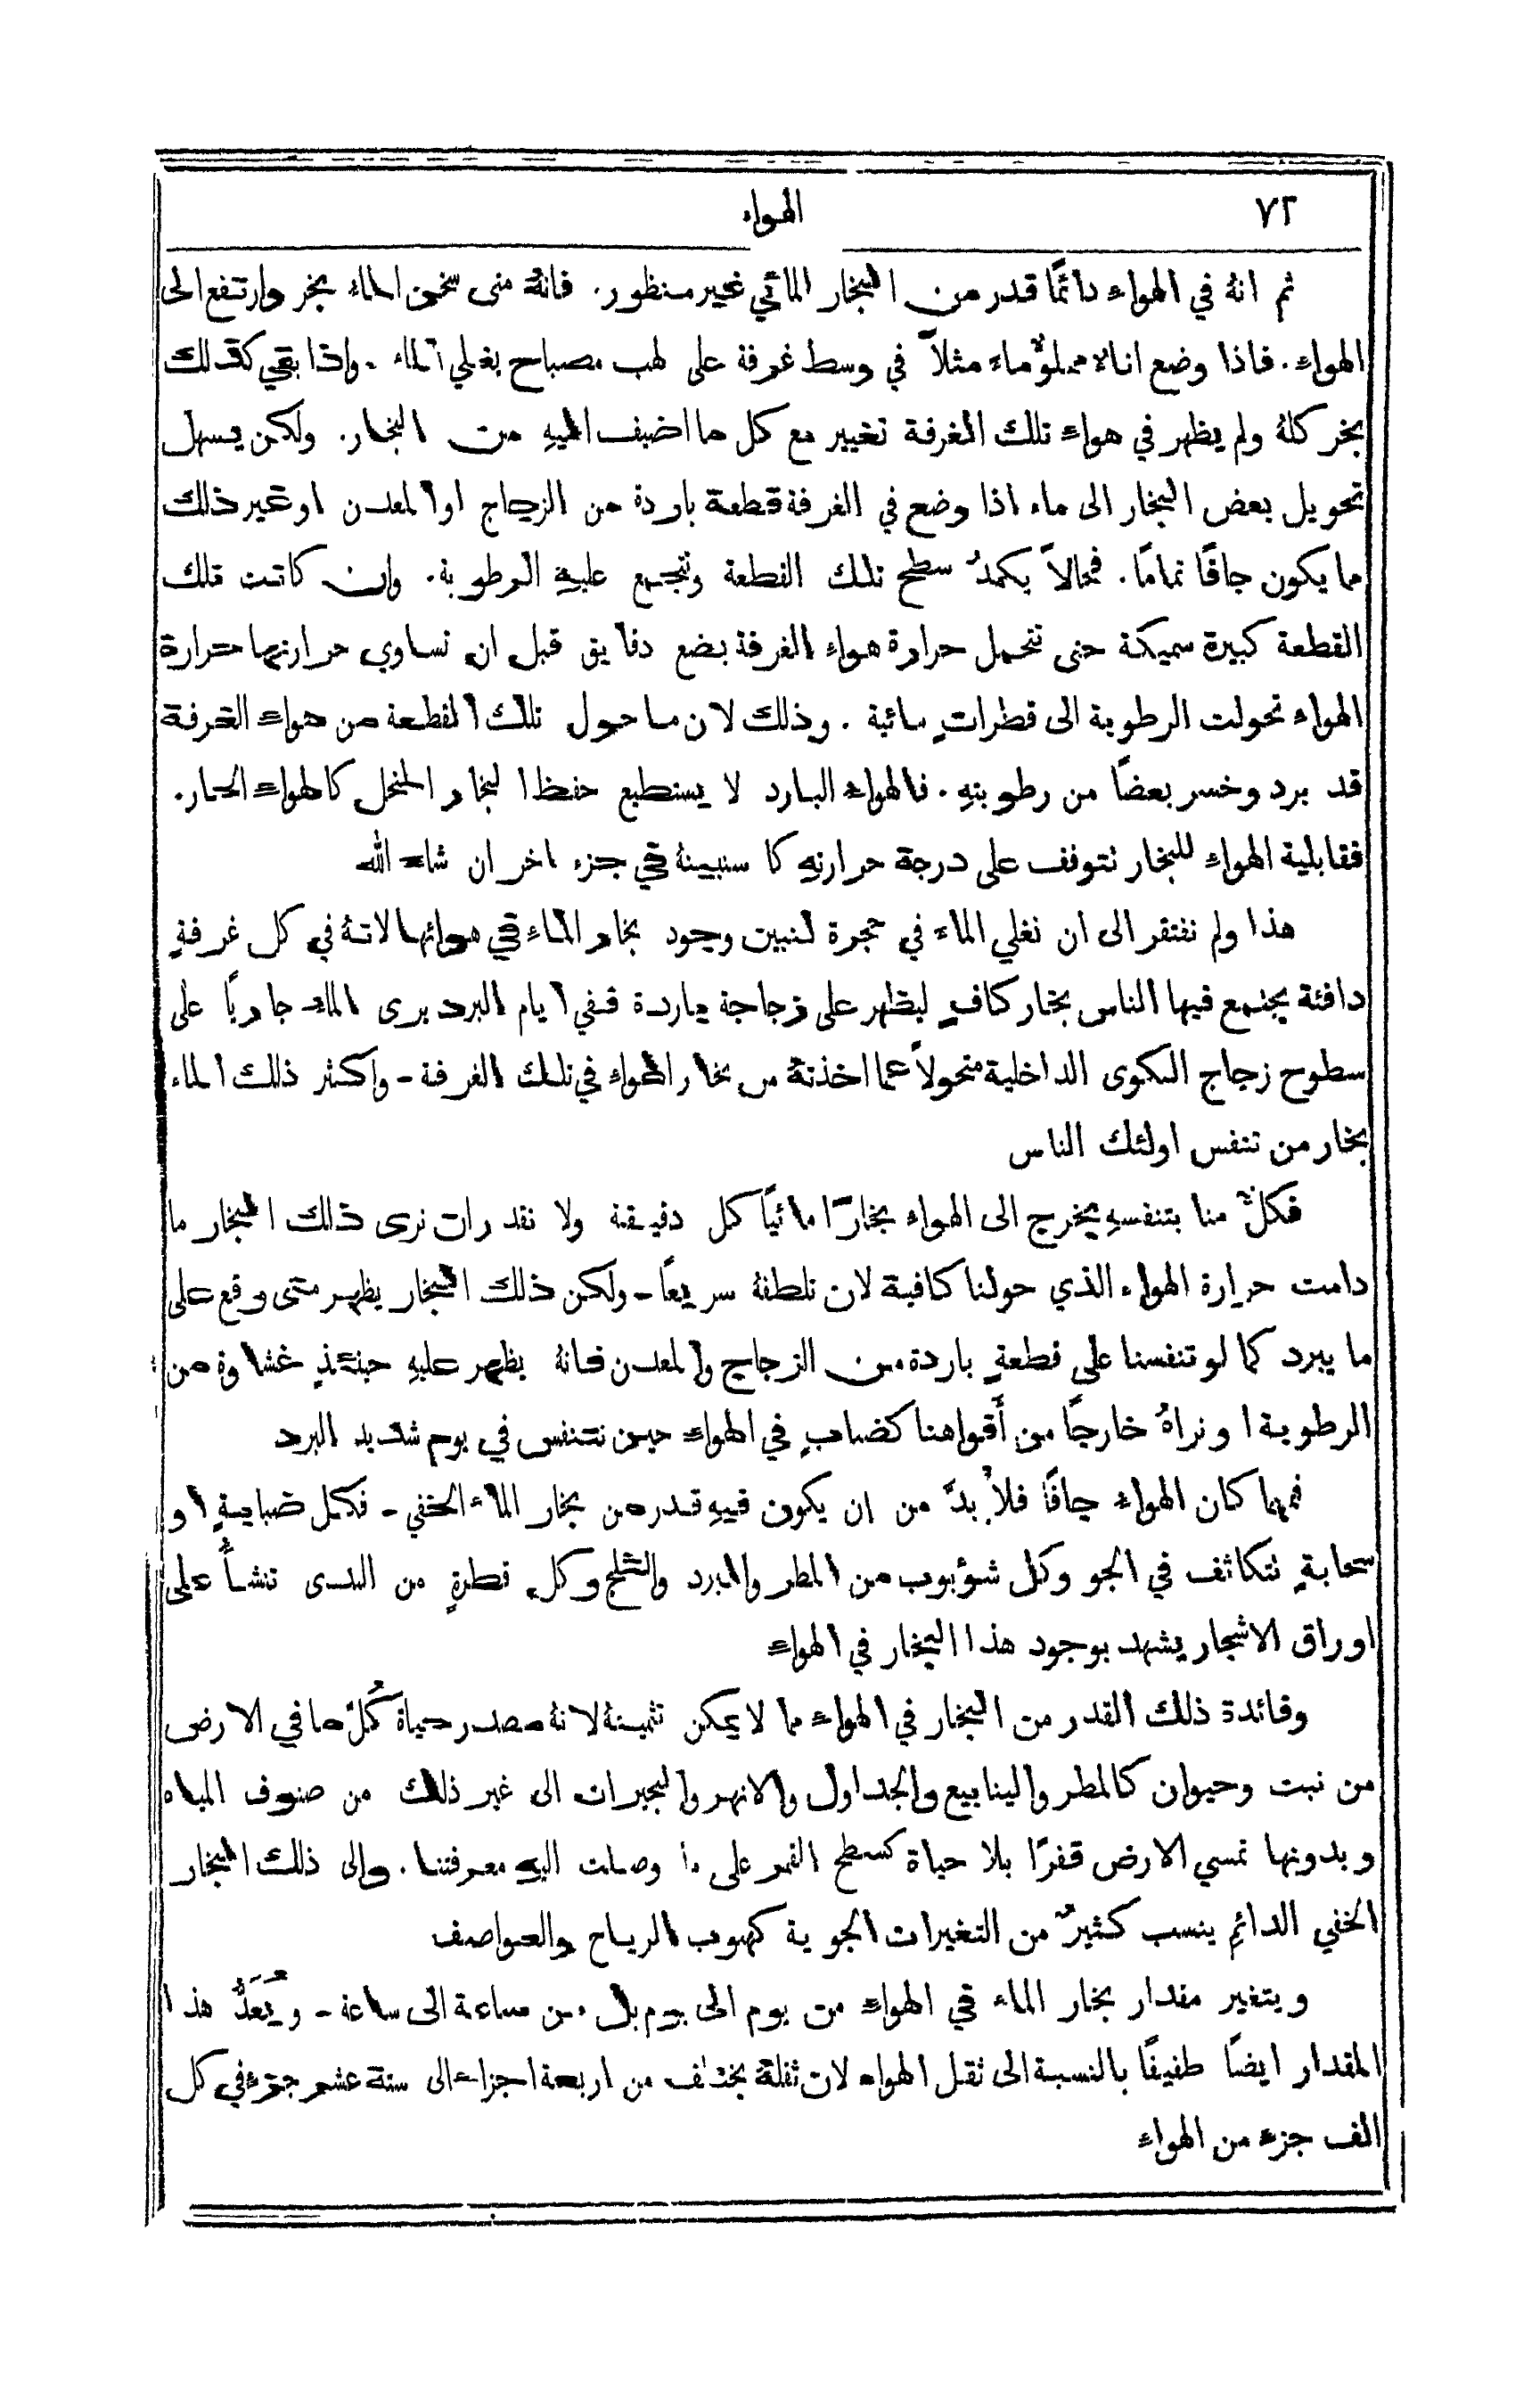 ٧٢
الهواء
ثم انهُ في الهواء دائمًا قدر من البخار المائي غير منظور. فانهُ متى سخن الماء بخر وارتفع الى
الهواء. فاذا وضع اناء مملوٌّ ماء مثلاً في وسط غرفة على لهب مصباح يغلي الماء. واذا بقي كذلك
بخر كلهُ ولم يظهر في هواء تلك الغرفة تغيير مع كل ما اضيف اليهِ من البخار. ولكن يسهل
تحويل بعض البخار الى ماء اذا وضع في الغرفة قطعة باردة من الزجاج او المعدن او غير ذلك
مما يكون جافًا تمامًا. فحالاً يكمدُ سطح تلك القطعة وتتجمع عليهِ الرطوبة. وان كانت تلك
القطعة كبيرة سميكة حتى تتحمل حرارة هواء الغرفة بضع دقايق قبل ان تساوي حرارتها حرارة
الهواء تحولت الرطوبة الى قطراتٍ مائية. وذلك لان ما حول تلك القطعة من هواء الغرفة
قد برد وخسر بعضًا من رطوبتهِ. فالهواء البارد لا يستطيع حفظ البخار المنحل كالهواء الحار.
فقابلية الهواء للبخار تتوقف على درجة حرارتهِ كما سنبينهُ في جزء اخر ان شاء الله
هذا ولم نفتقر الى ان نغلي الماء في حجرة لنبين وجود بخار الماء في هوائها لانهُ في كل غرفةٍ
دافئة يجتمع فيها الناس بخار كافٍ ليظهر على زجاجة باردة ففي ايام البرد يرى الماء جاريًا على
سطوح زجاج الكوى الداخلية متحولاً عما اخذتهُ من بخار الهواء في تلك الغرفة – واكثر ذلك الماء
بخار من تنفس اولئك الناس
فكلٌّ منا بتنفسهِ يخرج الى الهواء بخارًا مائيًا كل دقيقة ولا نقدر ان نرى ذلك البخار ما
دامت حرارة الهواء الذي حولنا كافية لان تلطفهُ سريعًا – ولكن ذلك البخار يظهر متى وقع على
ما يبرد كما لو تنفسنا على قطعةٍ باردة من الزجاج والمعدن فانهُ يظهر عليهِ حينئذٍ غشاوة من
الرطوبة او نراهُ خارجًا من أفواهنا كضبابٍ في الهواء حين نتنفس في يوم شديد البرد
فمهما كان الهواء جافًا فلا بدَّ من ان يكون فيهِ قدر من بخار الماء الخفي – فكل ضبابةٍ او
سحابةٍ تتكاثف في الجو وكل شؤبوب من المطر والبرد والثلج وكل قطرةٍ من الندى تنشأُ على
اوراق الاشجار يشهد بوجود هذا البخار في الهواء
وفائدة ذلك القدر من البخار في الهواء مما لا يمكن تثمينهُ لانهُ مصدر حياة كُلّ ما في الارض
من نبت وحيوان كالمطر والينابيع والجداول والانهر والبحيرات الى غير ذلك من صنوف المياه
وبدونها تمسي الارض قفرًا بلا حياة كسطح القمر على ما وصلت اليهِ معرفتنا. والى ذلك البخار
الخفي الدائمِ ينسب كثيرٌ من التغيرات الجوية كهبوب الرياح والعواصف
ويتغير مقدار بخار الماء في الهواء من يوم الى يوم بل من ساعة الى ساعة – ويُعَدُّ هذا
المقدار ايضًا طفيفًا بالنسبة الى ثقل الهواء لان ثقلهُ يختلف من اربعة اجزاء الى ستة عشر جزءٍ في كل
الف جزء من الهواء